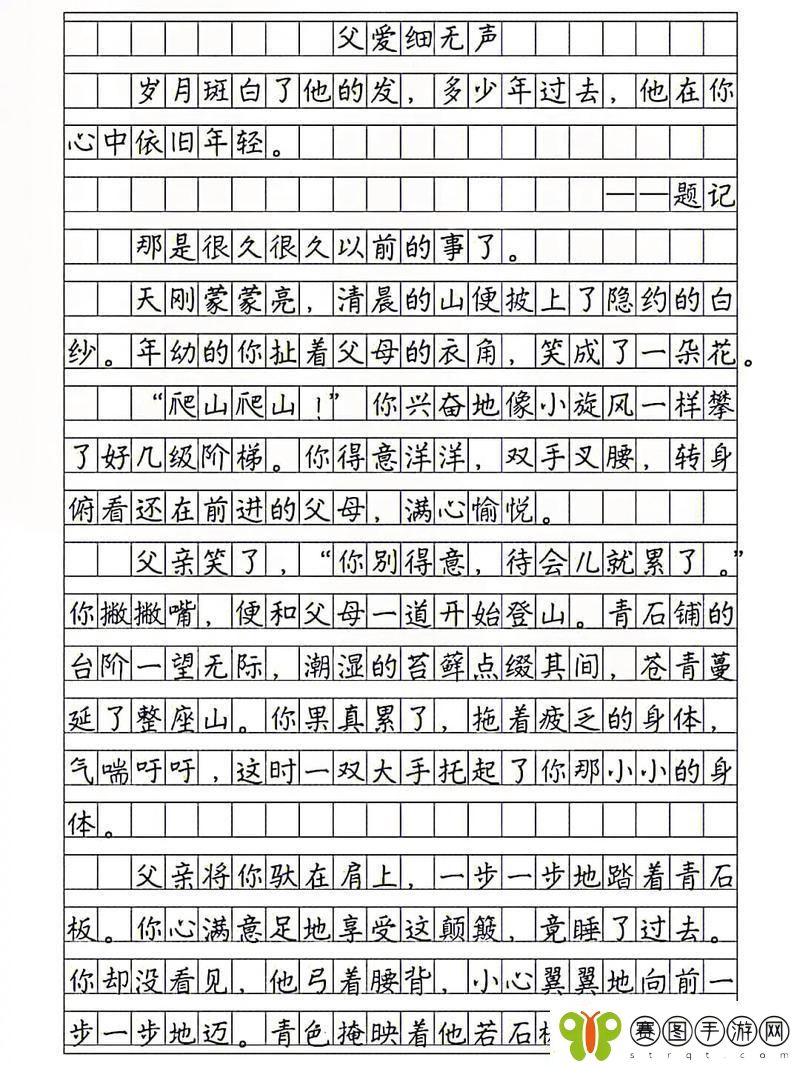 父爱细无声
岁月斑白了他的发，多少年过去，他在你
心中依旧年轻。
——题记
那是很久很久以前的事了。
天刚蒙蒙亮，清晨的山便披上了隐约的白
纱。年幼的你扯着父母的衣角，笑成了一朵花。
“爬山爬山！”你兴奋地像小旋风一样攀
了好几级阶梯。你得意洋洋，双手叉腰，转身
俯看还在前进的父母，满心愉悦。
父亲笑了，“你别得意，待会儿就累了。”
你撇撇嘴，便和父母一道开始登山。青石铺的
台阶一望无际，潮湿的苔藓点缀其间，苍青蔓
延了整座山。你果真累了，拖着疲乏的身体，
气喘吁吁，这时一双大手托起了你那小小的身
体。
父亲将你驮在肩上，一步一步地踏着青石
板。你心满意足地享受这颠簸，竟睡了过去。
你却没看见，他弓着腰背，小心翼翼地向前一
步一步地迈。青色掩映着他若石
赛图手游网
strqt.com